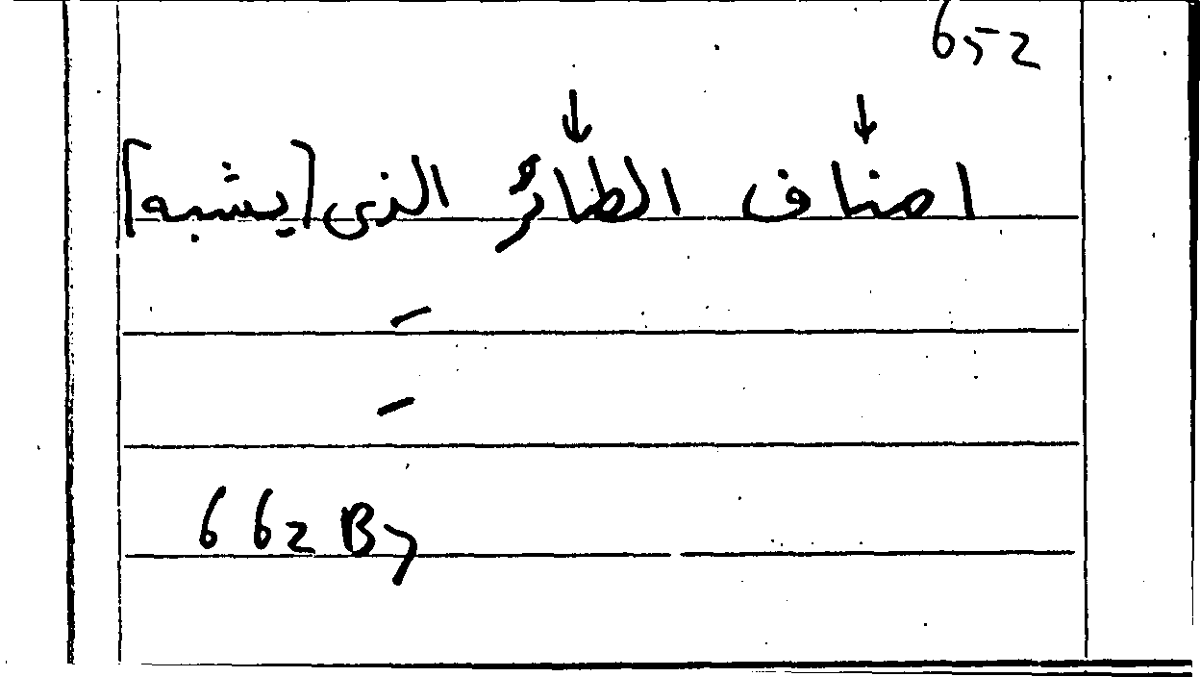 652
↓ ↓
اصناف الطائر الذى [يشبه]
–
–
662 B 7